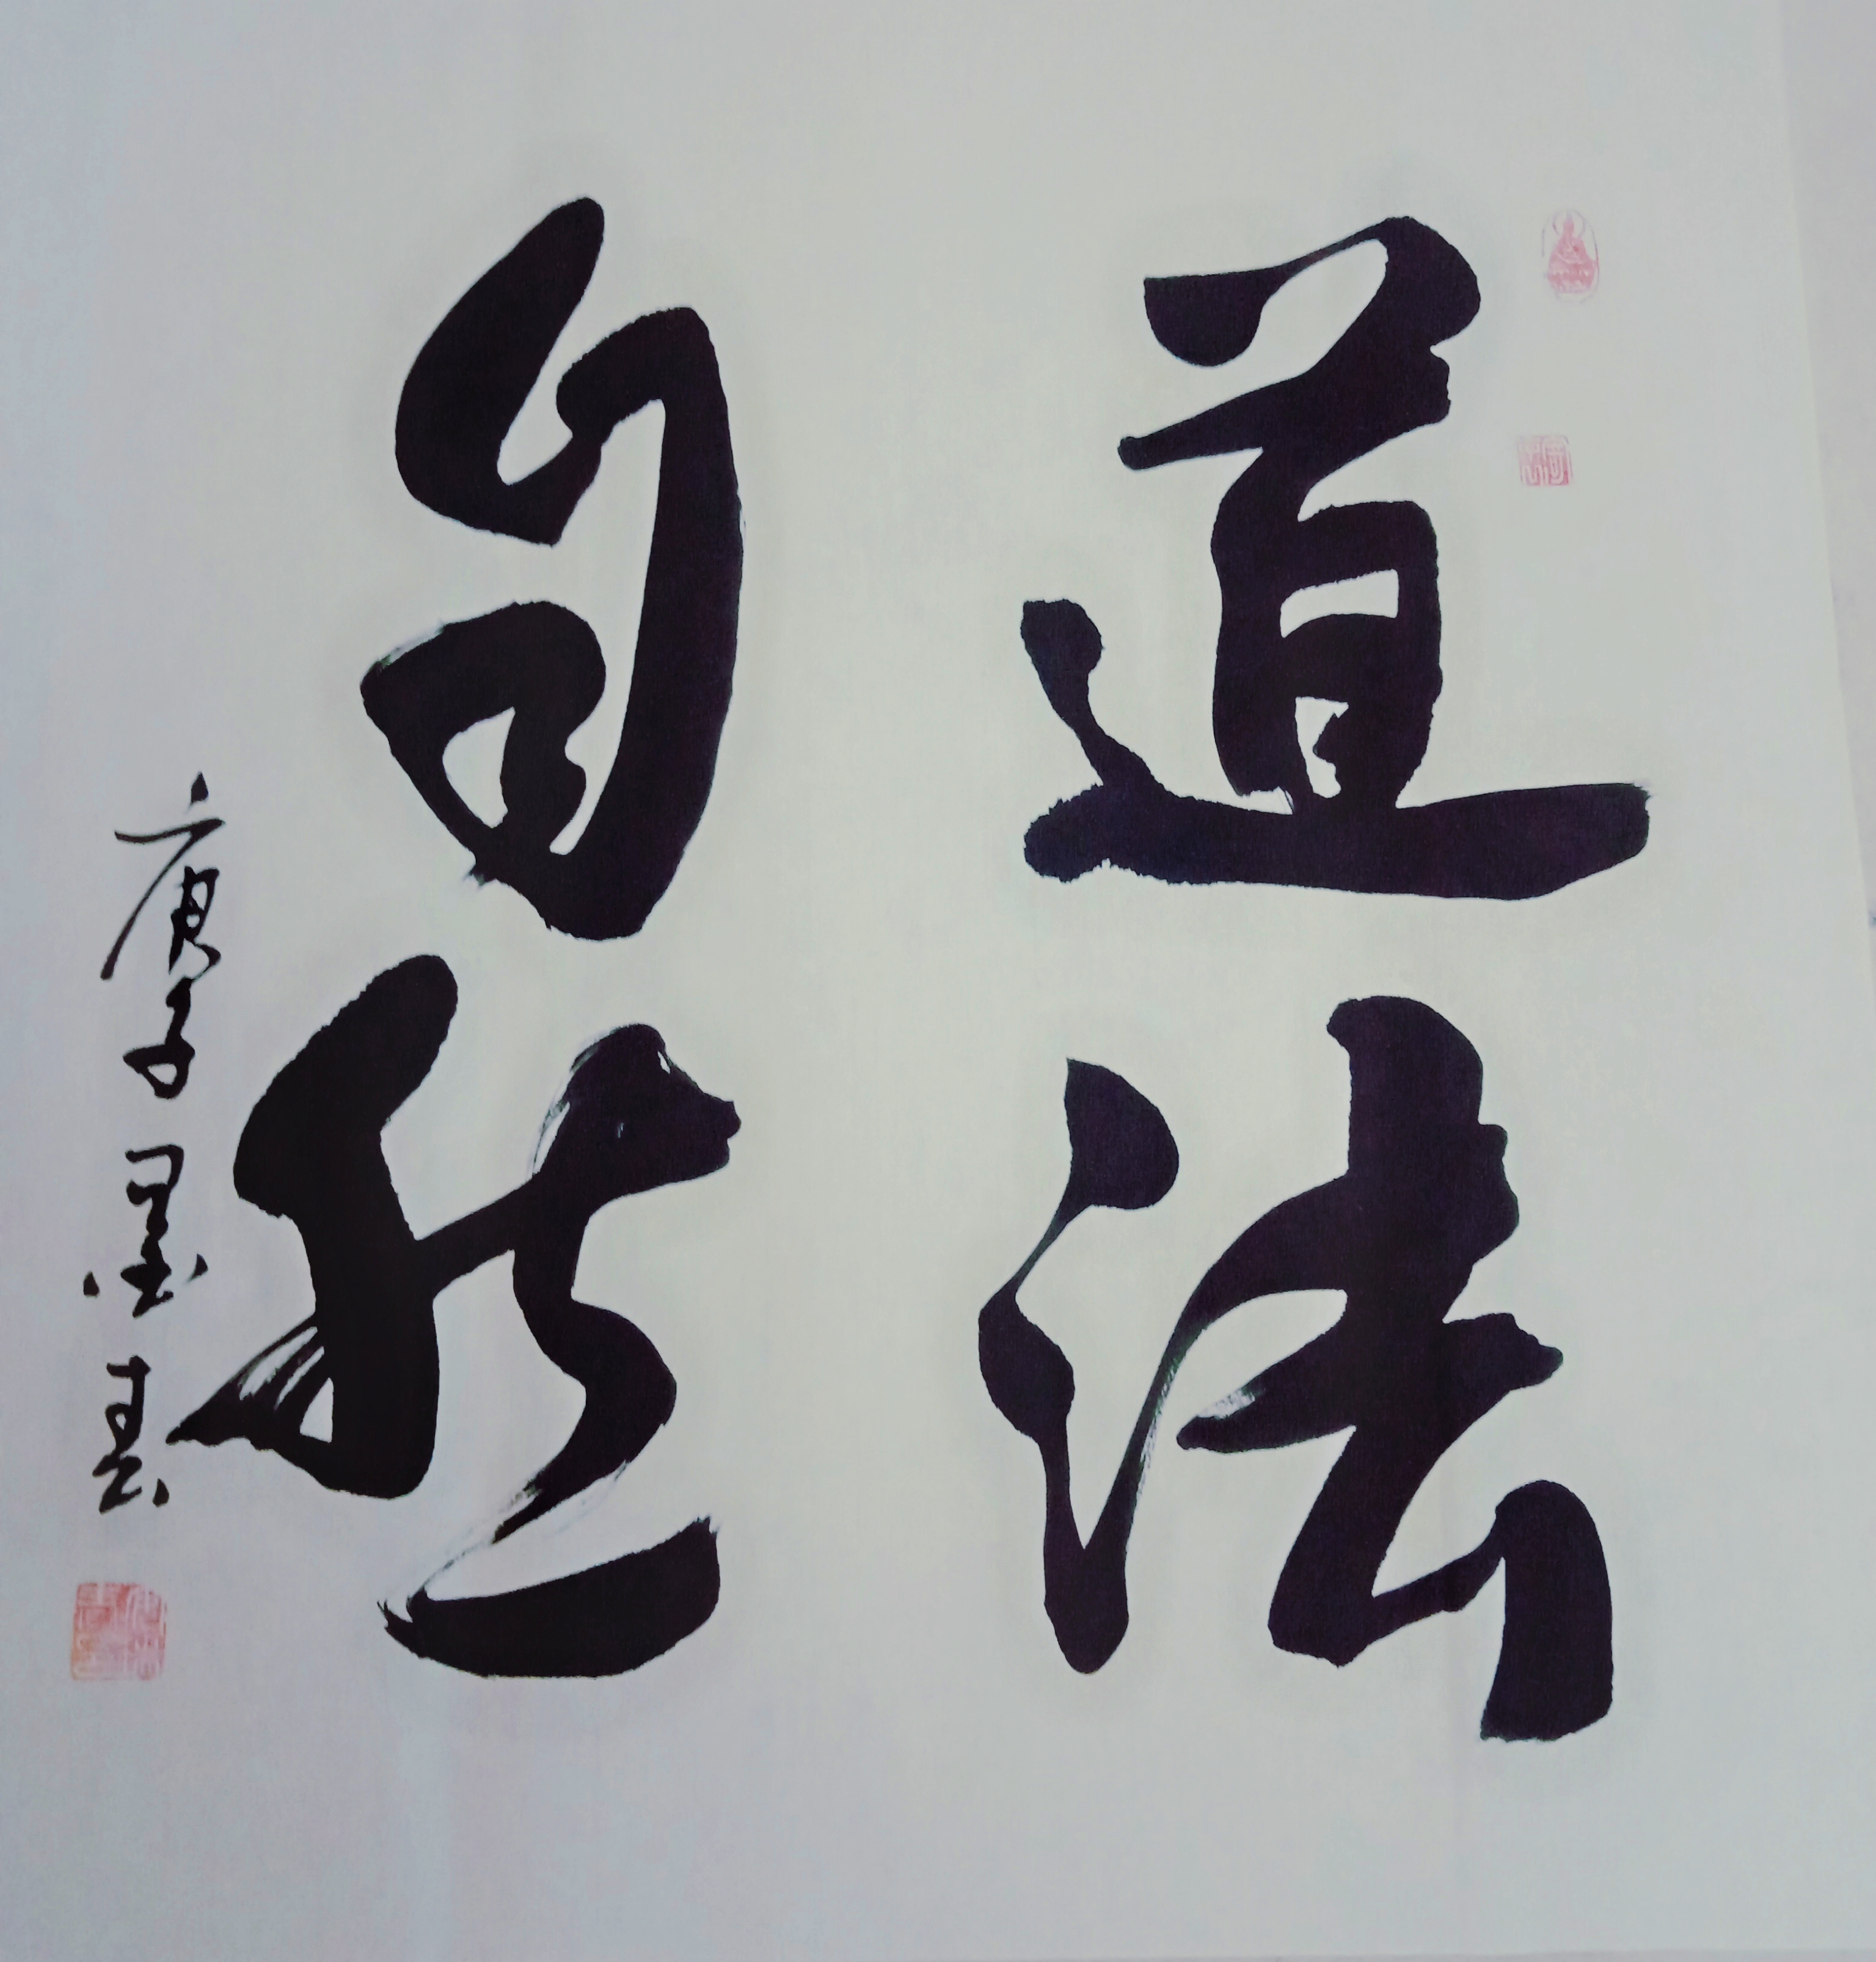 道法
自然
庚子墨春